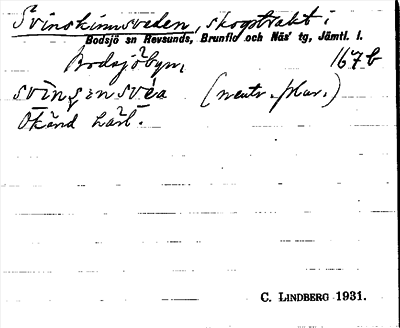 Svinskinnsveden, skogstrakt i
Bodsjö sn Revsunds, Brunflo och Näs' tg, Jämtl. l.
Bodsjöbyn, 167b
(neutr. plur.)
Okänd härl.
C. LINDBERG 1931.